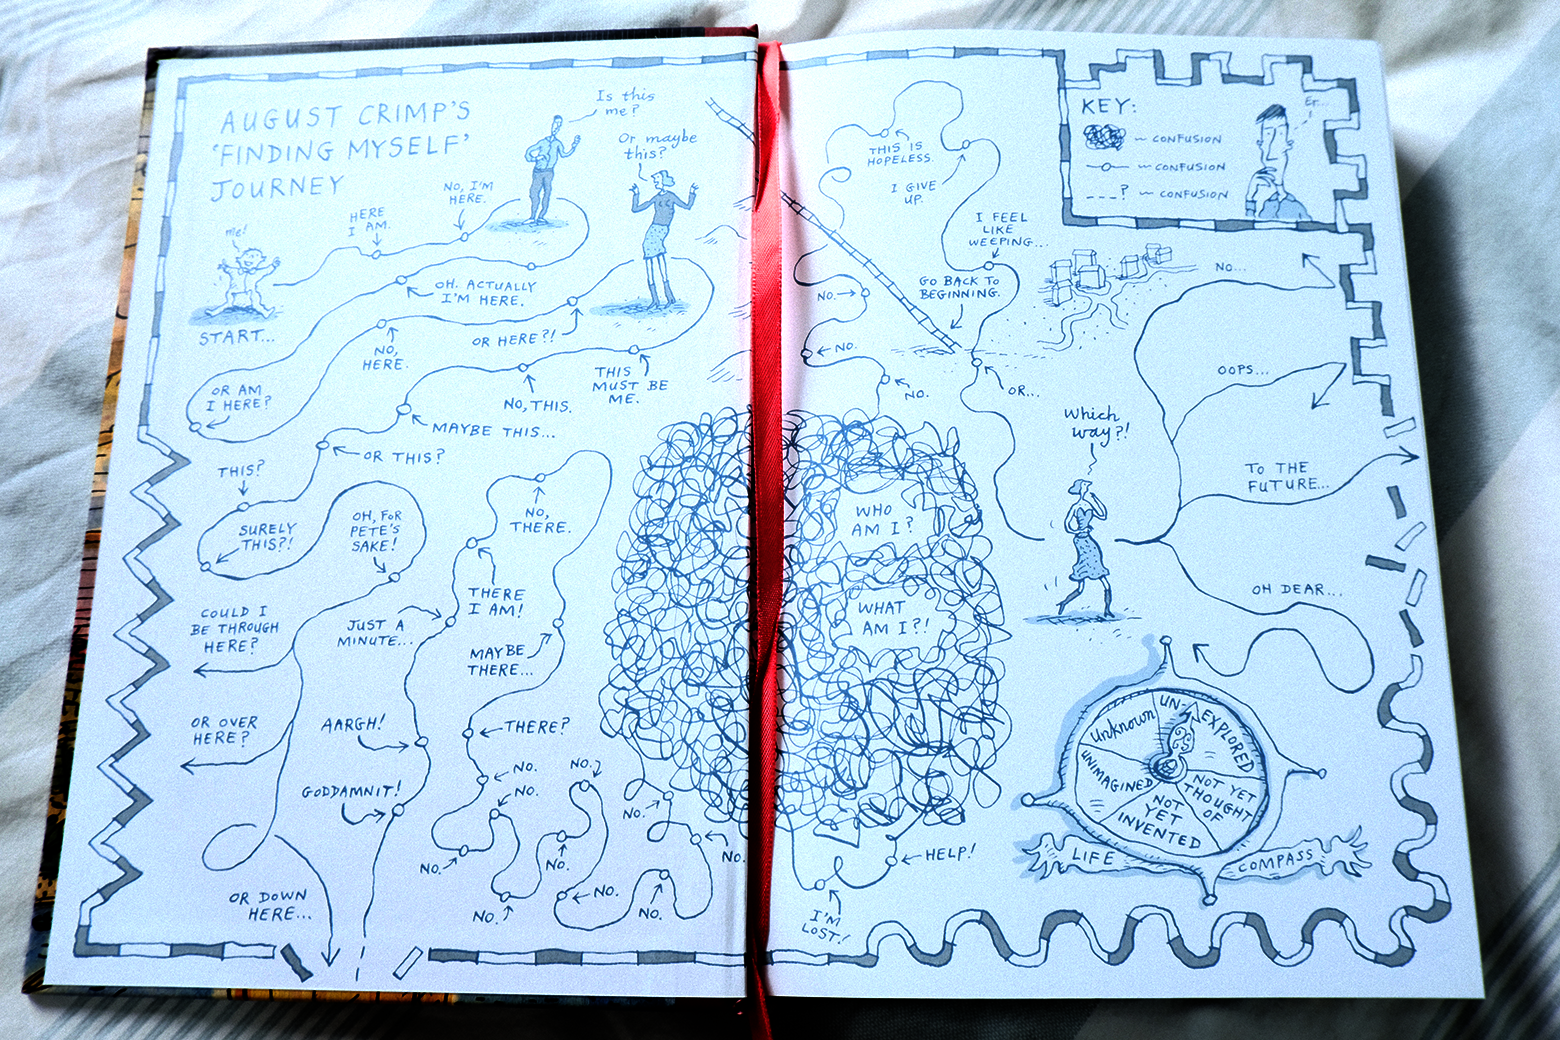 AUGUST CRIMP'S
'FINDING MYSELF'
JOURNEY
Is this
me?
Or maybe
this?
me!
START...
HERE
I AM.
NO, I'M
HERE.
OH. ACTUALLY
I'M HERE.
OR HERE?!
NO,
HERE.
OR AM
I HERE?
THIS
MUST BE
ME.
NO, THIS.
MAYBE THIS...
OR THIS?
THIS?
SURELY
THIS?!
OH, FOR
PETE'S
SAKE!
COULD I
BE THROUGH
HERE?
OR OVER
HERE?
OR DOWN
HERE...
JUST A
MINUTE...
AARGH!
GODDAMNIT!
THERE
I AM!
NO,
THERE.
MAYBE
THERE...
THERE?
NO.
NO.
NO.
NO.
NO.
NO.
NO.
NO.
NO.
NO.
WHO
AM I?
WHAT
AM I?!
I'M
LOST!
HELP!
NO.
NO.
NO.
THIS IS
HOPELESS.
I GIVE
UP.
I FEEL
LIKE
WEEPING...
GO BACK TO
BEGINNING.
OR...
Which
way?!
KEY:
~ CONFUSION
~ CONFUSION
? ~ CONFUSION
Er...
NO...
OOPS...
TO THE
FUTURE...
OH DEAR...
UN-EXPLORED
NOT YET
THOUGHT
OF
NOT
YET
INVENTED
UNIMAGINED
Unknown
LIFE
COMPASS